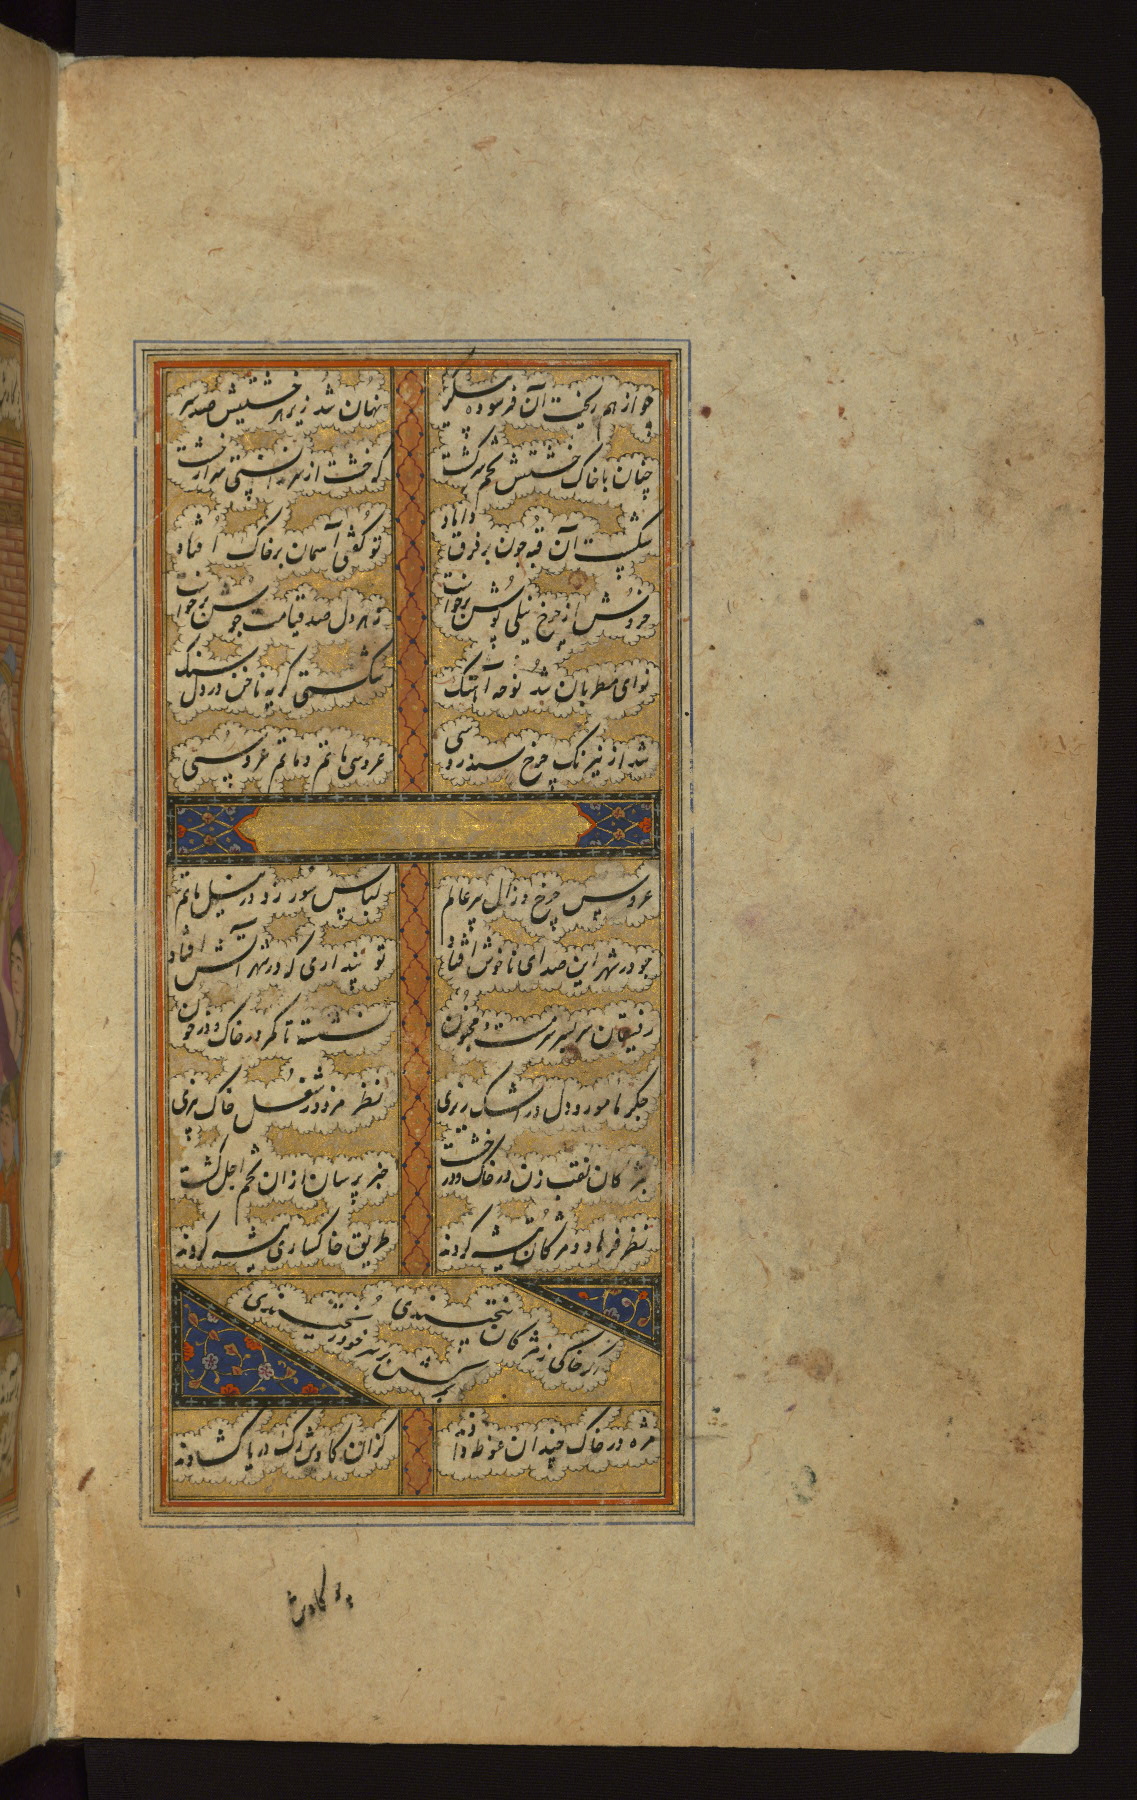 چو از هم ریخت آن فرسوده پیکر نهان شد زیر هر خشتیش صد سر
چنان با خاک خشتش تخم سر کشت که خشت از سر سر از خشت
شکست آن قبه چون بر فرق داماد تو گفتی آسمان بر خاک افتاد
خروش از چرخ نیلی پوش برخواست ز هر دل صد قیامت جوش برخواست
نوای مطربان شد نوحه آهنگ شکستی گریه ناخن در دل سنگ
شد از نیرنگ چرخ سندروسی عروسی ماتم و ماتم عروسی
عروس چرخ و زال پیر عالم لباس سور زد در نیل ماتم
چو در شهر این صدای ناخوش افتاد تو پنداری که در شهر آتش افتاد
رفیقان سر بسر سرمست و مجنون نشسته تا کمر در خاک و در خون
جگر ناسور و دل در اشک ریزی نظر مزدور شغل خاک بیزی
بمژگان نقب زن در خاک و در خشت خبر پرسان از ان تخم اجل کشت
نظر فرهاد و مژگان تیشه کردند طریق خاکساری پیشه کردند
گر خاکی ز مژگان بیختندی
بر سر خود ریختندی
مژه در خاک چندان غوطه دادند کزان کاوش رگ دریا گشادند
کاوش